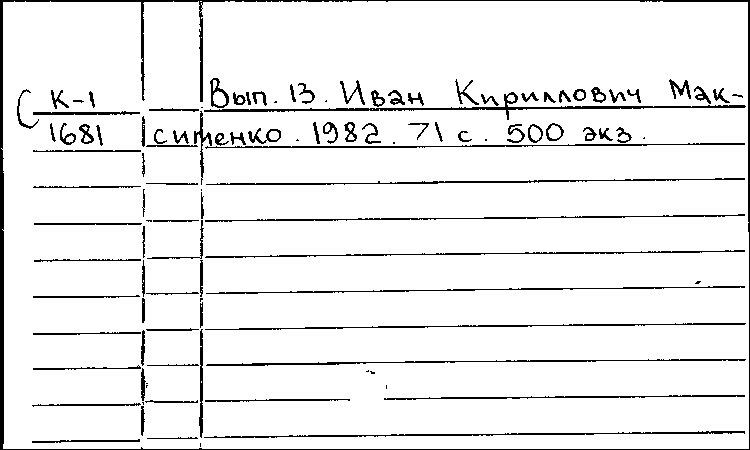 С К-1
1681
Вып. 13. Иван Кириллович Мак-
сименко. 1982. 71 с. 500 экз.